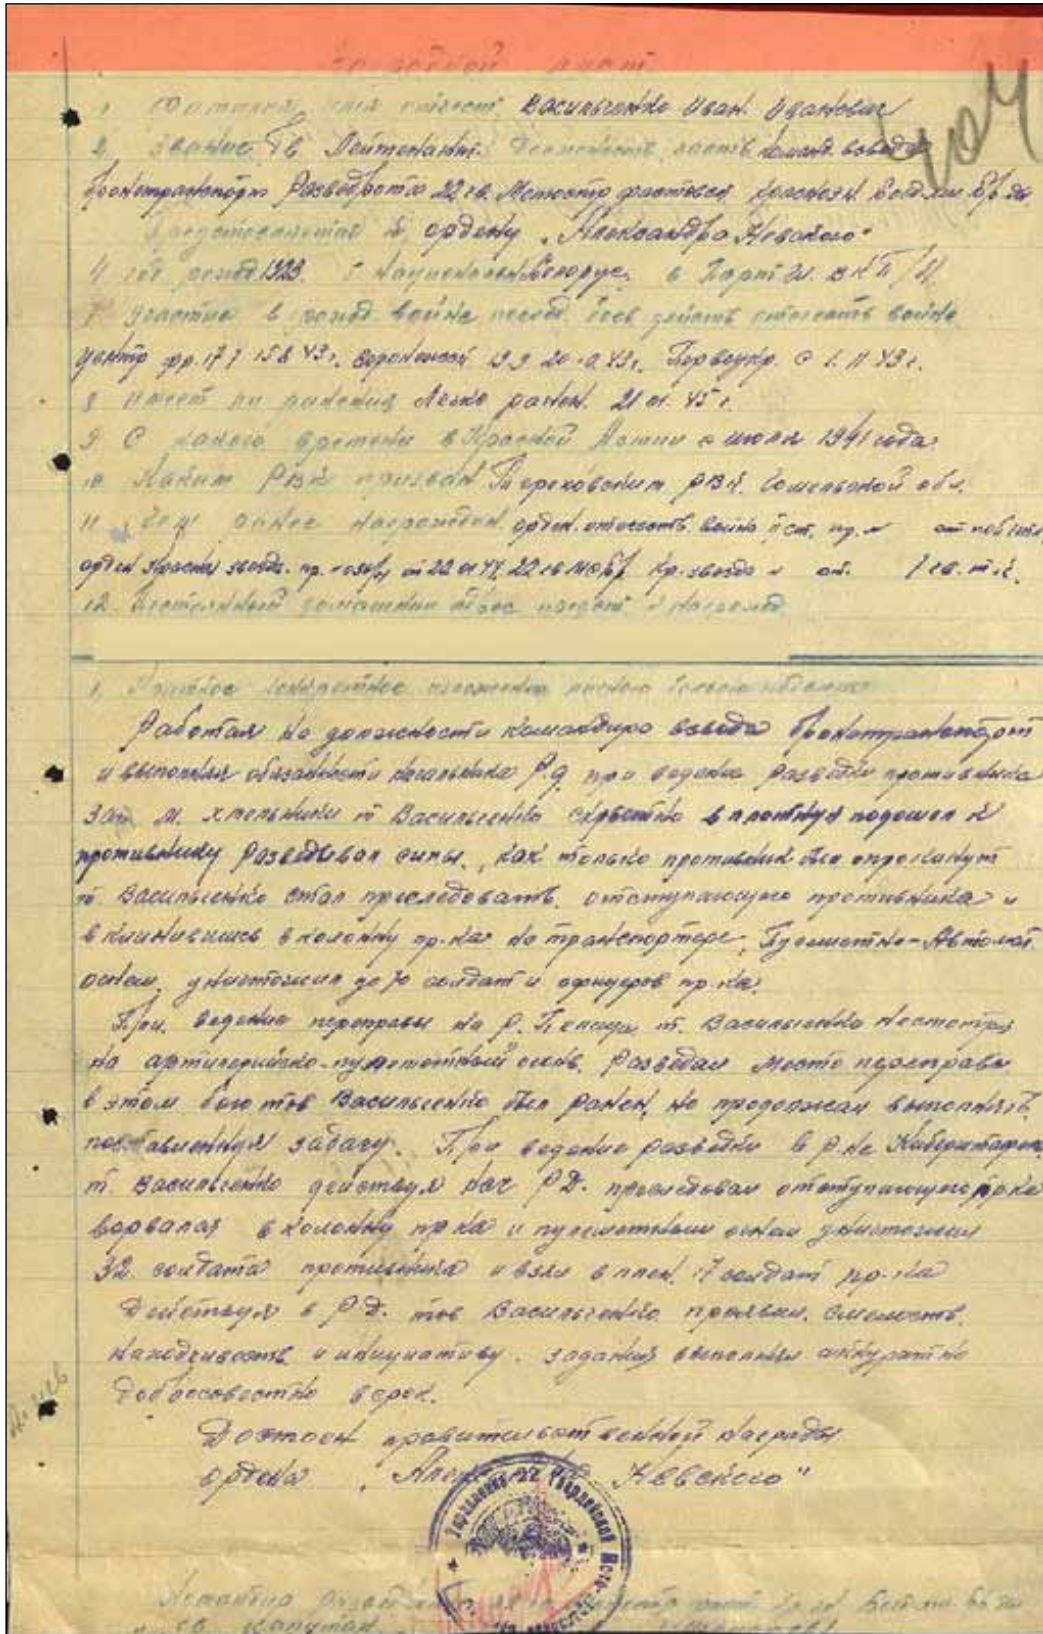 Наградной лист
1. Фамилия, имя отчест Васильченко Иван Иванович
2. Звание Гв Лейтенант. Должность, часть команд. взвода
бронетранспорт Разведроты 22 гв. Мотостр фастовск краснозн Богд. хм Бр-ды
Представляется к ордену „Александра Невского“
4 год рожд 1923. 5 Национальн Белорус. 6 Парт чл. ВКП/б/.
7 участие в гражд войне послед боев действ отечеств войне
центр фр. 17 7 15 8 43 г. Воронежский 19.9 20 10.43 г. Первоукр. с 1. 11 43 г.
8 Имеет ли ранения Легко ранен. 21 01. 45 г.
9 С какого времени в Красной Армии с июля 1941 года.
10 Каким РВК призван Тереховским РВК. Гомельской обл.
11 Чем ранее награжден орден. отечеств. война II ст. пр. №
орден красная звезда. пр. от 22 01 44, 22 гв МСБр Кр. звезда № от. 7 гв. т. к.
12. Постоянный домашний адрес
1. Краткое конкретное изложение личного боевого подвига
Работая на должности командира взвода бронетранспорт
и выполняя обязанности начальника Р.Д. при ведении разведки противника
зап м. хмельники т Васильченко скрытно вплотную подошел к
противнику Разведывал силы, как только противник был опрокинут
т. Васильченко стал преследовать отступающего противника и
вклинившись в колонну пр-ка на транспортере, Пулеметно-Автомат.
огнем, уничтожил до 70 солдат и офицеров пр-ка.
При ведение переправы на Р. Пелица т. Васильченко несмотря
на артилерийско-пулеметный огонь, Разведал место переправы
в этом бою тов Васильченко был ранен, но продолжал выполнять
поставленную задачу. При ведение разведки в р-не
т. Васильченко действуя нач РД. преследовал отступающего пр-ка
ворвался в колонну пр-ка и пулеметным огнем уничтожил
32 солдата противника и взял в плен. 17 солдат пр-ка
Действуя в Р.Д. тов Васильченко проявил. Смелость,
находчивость и инициативу. задания выполнял аккуратно
добросовестно в срок.
Достоен правительственной награды
ордена „Александра Невского“